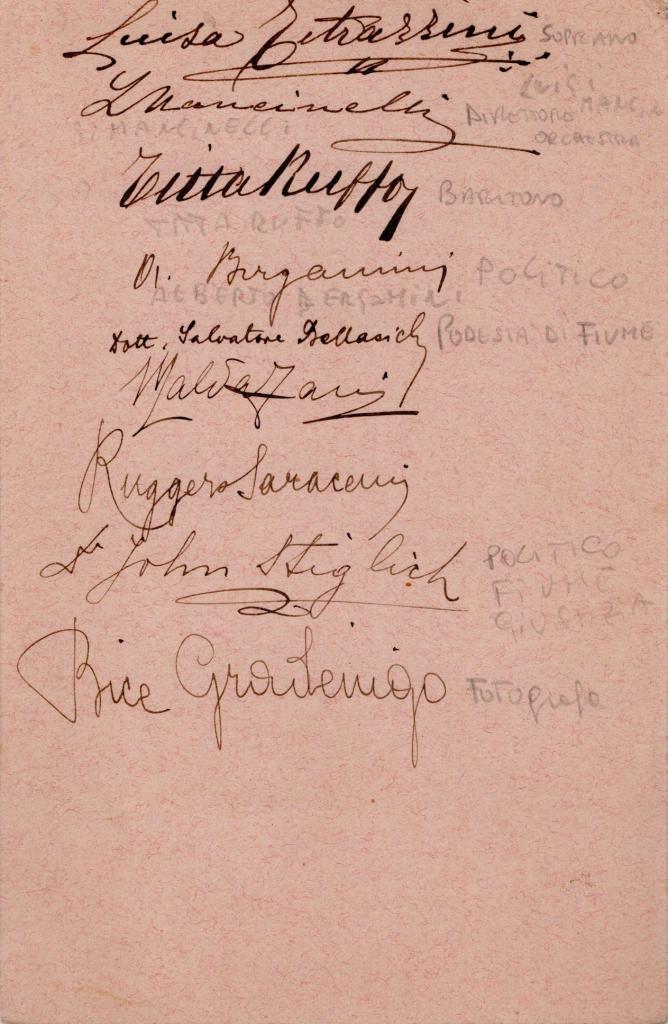 Luisa Tetrazzini SOPRANO
LMancinelli LUIGI MANCIN
MANCINELLI DIRETTORE ORCHESTRA
Titta Ruffo BARITONO
TITTA RUFFO
Bergamini POLITICO
ALBERTO BERGAMINI
Dott. Salvatore Bellasich PODESTA DI FIUME
Ruggero Saraceni
Dr John Stiglich POLITICO
FIUME
GIUSTIZIA
Bice Gradenigo Fotografa